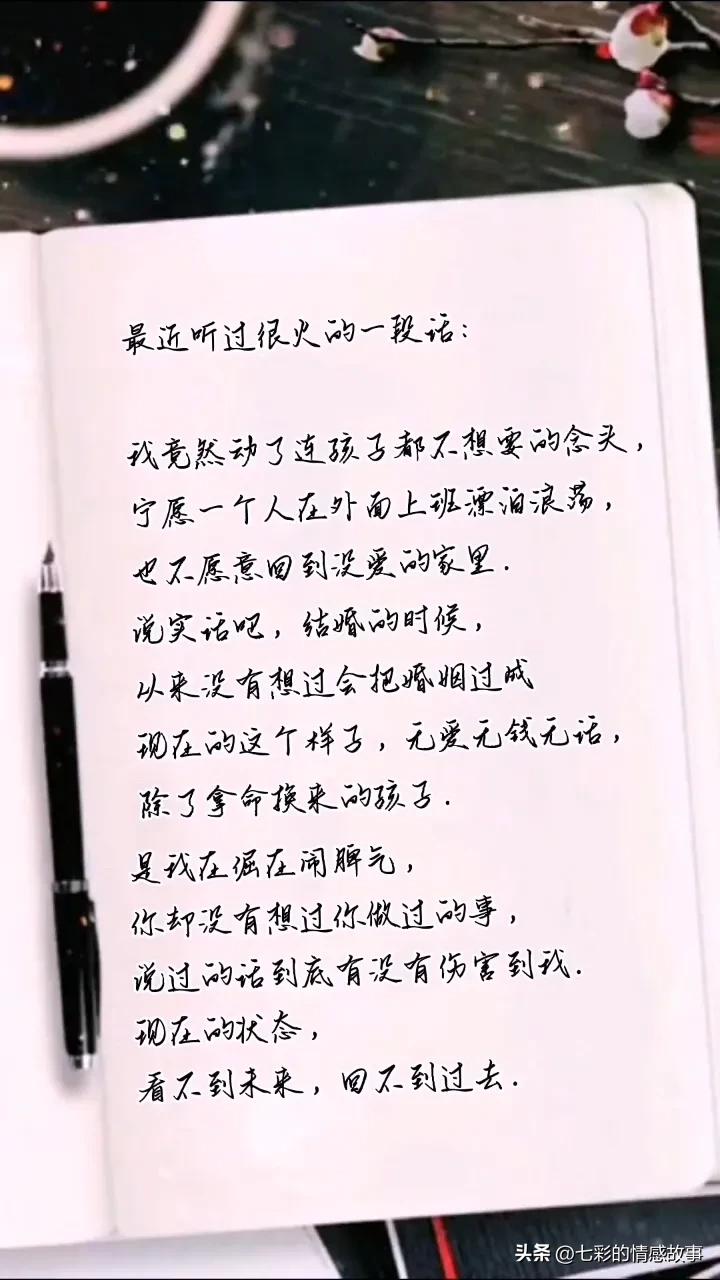 最近听过很火的一段话：
我竟然动了连孩子都不想要的念头，
宁愿一个人在外面上班漂泊浪荡，
也不愿意回到没爱的家里．
说实话吧，结婚的时候，
以来没有想过会把婚姻过成
现在的这个样子，无爱无钱无话，
除了拿命换来的孩子．
是我在倔在闹脾气，
你却没有想过你做过的事，
说过的话到底有没有伤害到我．
现在的状态，
看不到未来，回不到过去．
头条 @七彩的情感故事